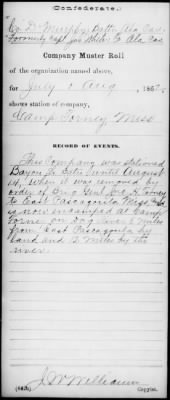 (Confederate.)
Co. D, Murphy's Battn Ala Cav.
Formerly Capt Jas Ala Cav
Company Muster Roll
of the organization named above,
for July & Aug, 1862.
shows station of company,
Camp Forney Miss
RECORD OF EVENTS.
This Company was stationed
Bayou La Batre until August
14, when it was removed by
order of Brig Genl Jno H. Forney
to East Pascagoula Miss, &
is now encamped at Camp
Forney on Dog River 6 miles
from East Pascagoula by
land and 12 miles by the
river.
J W Williams
(642)
Copyist.